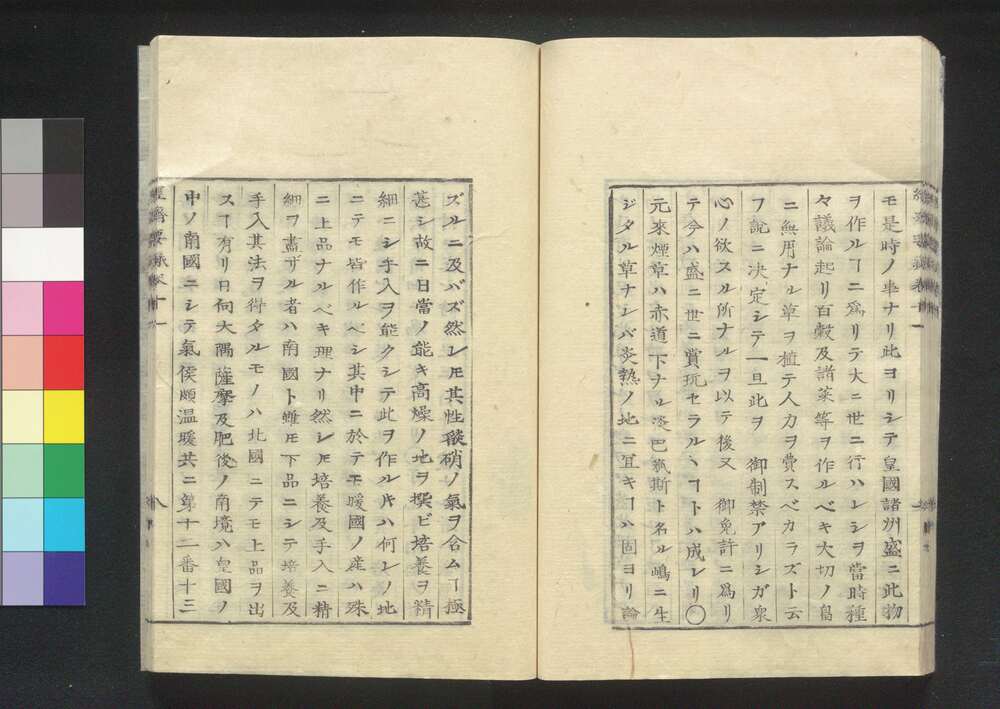 モ是時ノ事ナリ此ヨリシテ皇國諸州盛ニ此物
ヲ作ルヿニ爲リテ大ニ世ニ行ハレシヲ當時種
々議論起リ百穀及諸菜等ヲ作ルベキ大切ノ畠
ニ無用ナル草ヲ植テ人力ヲ費スベカラズト云
フ説ニ决定シテ一旦此ヲ 御制禁アリシガ衆
心ノ欲スル所ナルヲ以テ後又 御免許ニ爲リ
テ今ハ盛ニ世ニ賞玩セラルヽヿトハ成レリ〇
元來煙草ハ赤道下ナル淡巴菰斯ト名ル嶋ニ生
ジタル草ナレバ炎熱ノ地ニ宜キヿハ固ヨリ論
ズルニ及バズ然レ𪜈其性礆硝ノ氣ヲ含ムヿ極
甚シ故ニ日當ノ能キ高燥ノ地ヲ撰ビ培養ヲ精
細ニシ手入ヲ能クシテ此ヲ作ル𪜈ハ何レノ地
ニテモ皆作ルベシ其中ニ於テモ暖國ノ産ハ殊
ニ上品ナルベキ理ナリ然レ𪜈培養及手入ニ精
細ヲ盡ザル者ハ南國ト雖モ下品ニシテ培養及
手入其法ヲ得タルモノハ北國ニテモ上品ヲ出
スヿ有リ日向大隅薩摩及肥後ノ南境ハ皇國ノ
中ノ南國ニシテ氣侯頗温暖共ニ第十二番十三
經濟要録卷十一
八